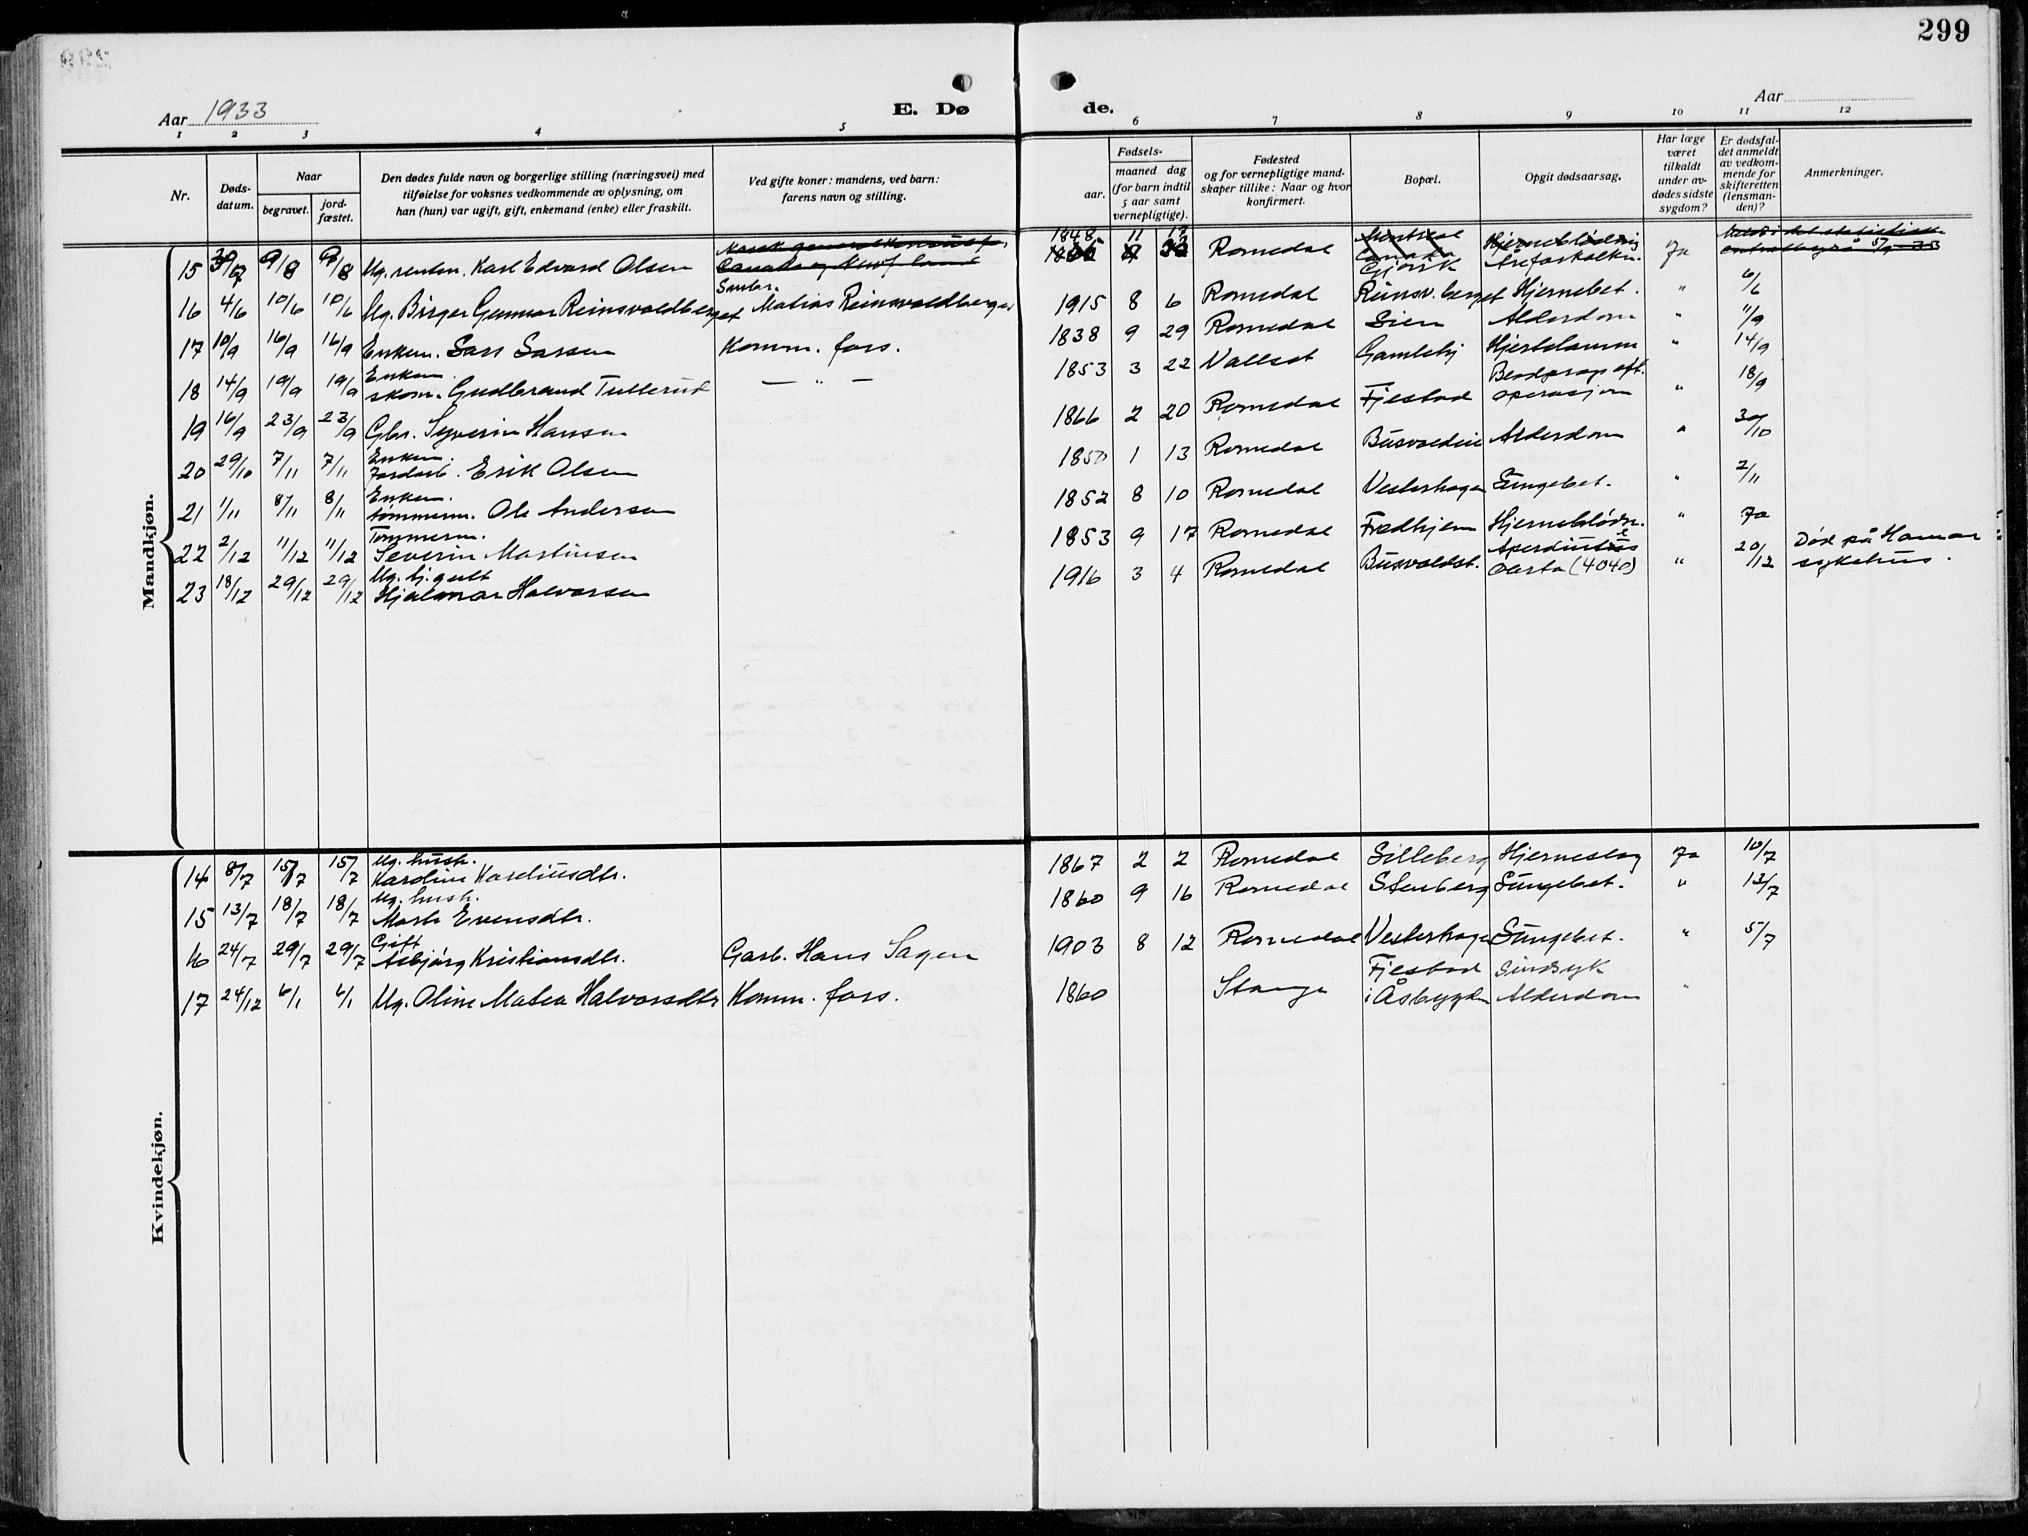 299
Aar 1933
E. Dø
de.
Aar
1 2 3 4 5 6 7 8 9 10 11 12
Nr.
Døds-
datum.
Naar
begravet.
jord-
fæstet.
Den dødes fulde navn og borgerlige stilling (næringsvei) med
tilføielse for voksnes vedkommende av oplysning, om
han (hun) var ugift, gift, enkemand (enke) eller fraskilt.
Ved gifte koner: mandens, ved barn:
farens navn og stilling.
Fødsels-
aar.
maaned dag
(for barn indtil
5 aar samt
vernepligtige).
Fødested
og for vernepligtige mand-
skaper tillike: Naar og hvor
konfirmert.
Bopæl.
Opgit dødsaarsag.
Har læge
været
tilkaldt
under av-
dødes sidste
sygdom?
Er dødsfal-
det anmeldt
av vedkom-
mende for
skifteretten
(lensman-
den)?
Anmerkninger.
Mandkjøn.
15 30/7 9/8 9/8 Ug. renten. Karl Edvard Olsen 1848 11 Romedal Gjøvik Åreforkalkn. Ja
16 4/6 10/6 10/6 Ug. Birger Gunnar Reinsvoldberget Småbr. Matias Reinsvoldberget 1915 8 6 Romedal Reinsv.berget Hjernebet. " 6/6
17 10/9 16/9 16/9 Enkem. Lars Larsen Komm. fors. 1838 9 29 Romedal Lien Alderdom " 11/9
18 14/9 19/9 19/9 Enkem. skom. Gudbrand Tullerud — " — 1853 3 22 Vallset Gamleby Hjertelamm " 14/9
19 16/9 23/9 23/9 Gbr. Syverin Hansen 1866 2 20 Romedal Fjestad Blodprop eft. operasjon " 18/9
20 29/10 7/11 7/11 Enkem. Jordarb. Erik Olsen 1850 1 13 Romedal Busvoldeie Alderdom " 30/10
21 1/11 8/11 8/11 Enkem. tømmerm. Ole Andersen 1852 8 10 Romedal Vesterhagen Lungebet. " 2/11
22 2/12 11/12 11/12 Tømmerm. Severin Martinsen 1853 9 17 Romedal Fredhjem Hjerneblødn. " Ja
23 18/12 29/12 29/12 Ug. hj.gutt Hjalmar Halvorsen 1916 3 4 Romedal Busvoldst. (4040) " 20/12 Død på Hamar
sykehus.
Kvindekjøn.
14 8/7 15/7 15/7 Ug. hush. Karoline Kareliusdtr. 1867 2 2 Romedal Lilleberg Hjerneslag Ja 10/7
15 13/7 18/7 18/7 Ug. hush. Marte Evensdtr. 1860 9 16 Romedal Stenberg Lungebet. " 13/7
16 24/7 29/7 29/7 Gift Asbjørg Kristiansdtr. Garb. Hans Sagen 1903 8 12 Romedal Vesterhagen Lungebet. " 5/7
17 24/12 6/1 6/1 Ug. Oline Matea Halvorsdtr Komm. fors. 1860 Stange Fjestad i Åsbygden Sindsyk Alderdom "